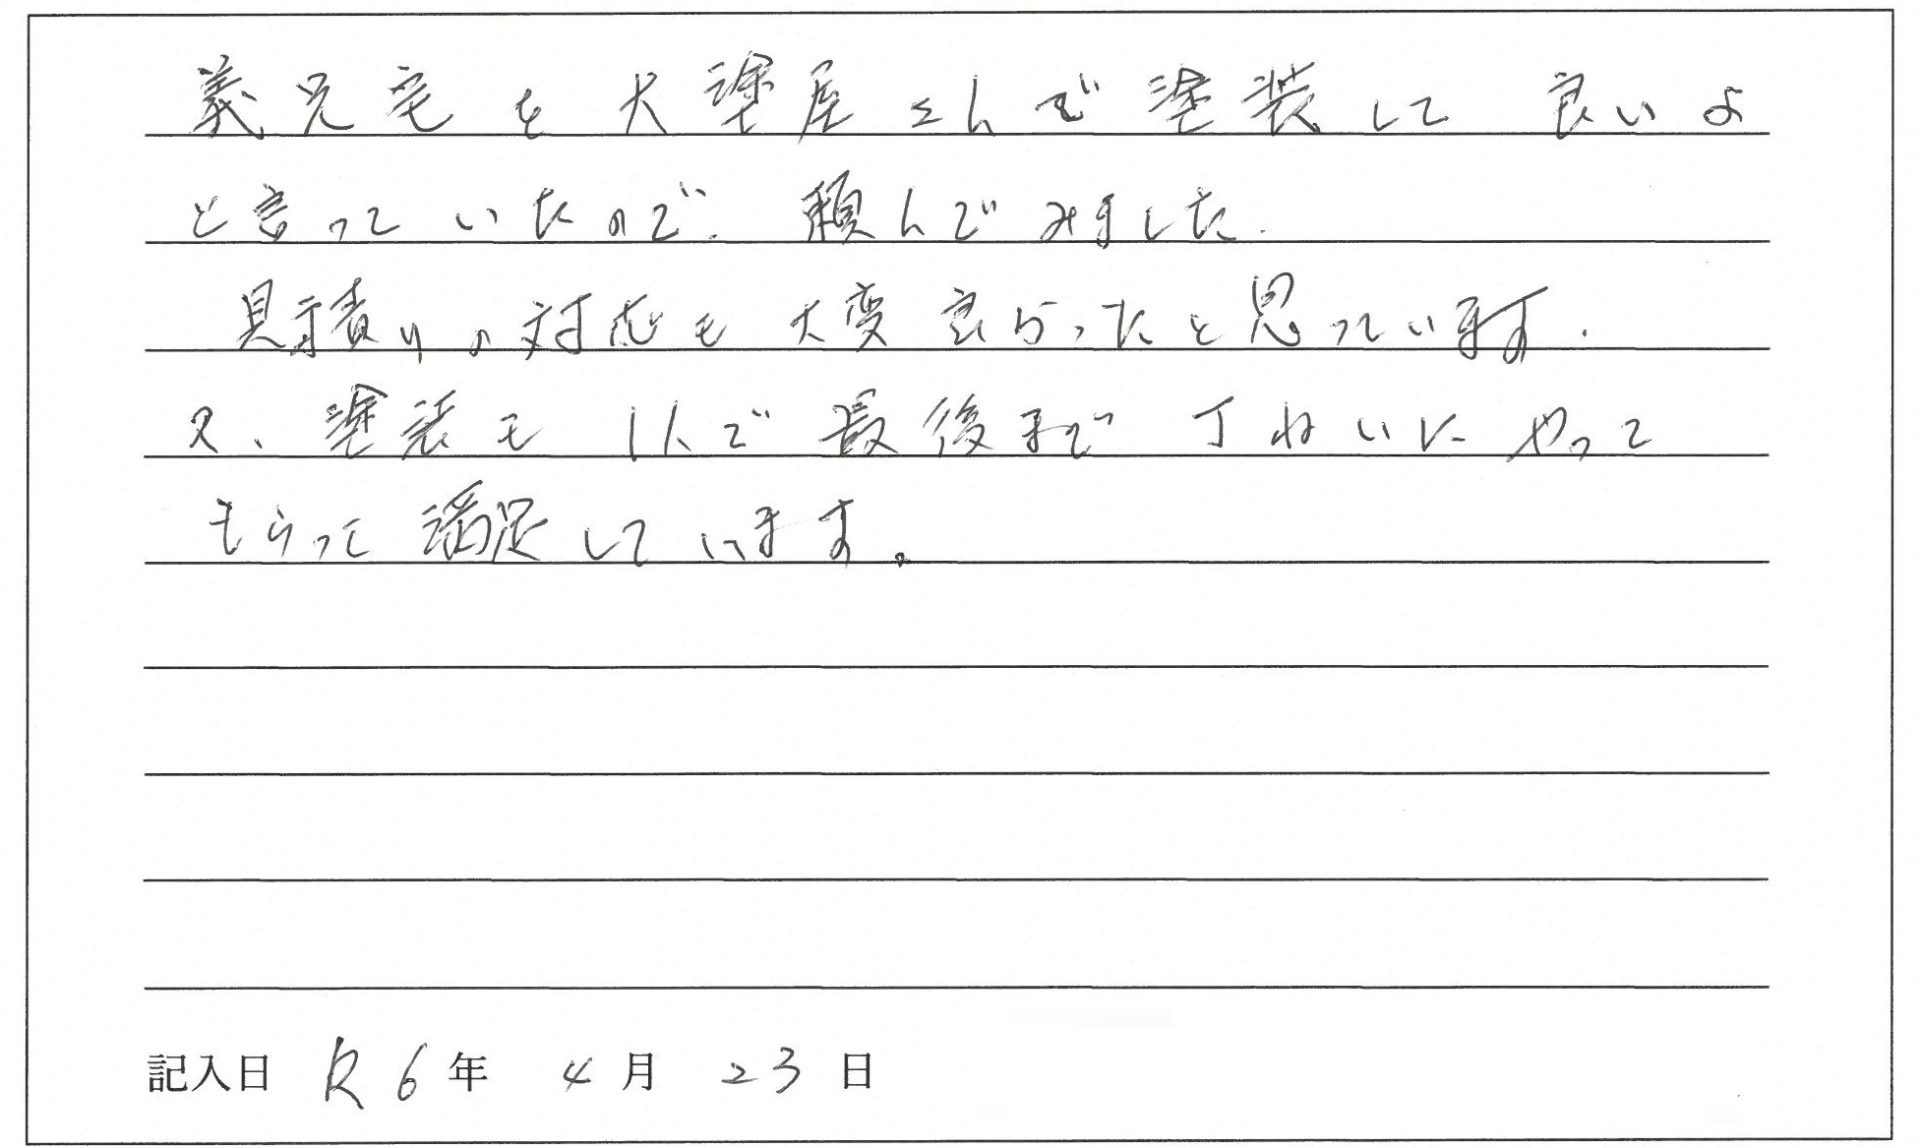 義兄宅を大塗屋さんで塗装して 良いよ
と言っていたので、頼んでみました。
見積りの対応も大変良かったと思っています。
又、塗装も1人で最後まで丁ねいにやって
もらって満足しています。
記入日 R6年 4月 23日